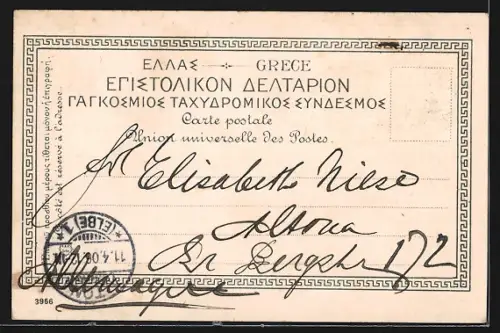 ΕΛΛΑΣ — GRECE
ΕΠΙΣΤΟΛΙΚΟΝ ΔΕΛΤΑΡΙΟΝ
ΠΑΓΚΟΣΜΙΟΣ ΤΑΧΥΔΡΟΜΙΚΟΣ ΣΥΝΔΕΣΜΟΣ
Carte postale
Union universelle des Postes.
Elisabeth
Altona
Gr Bergstr 172
Allemagne
Ἐμπρόσθιον μέρος τίθεται μόνον ἡ ἐπιγραφή.
côté est réservé à l'adresse.
ALTONA
(ELBE) 1
11.4.06
3956